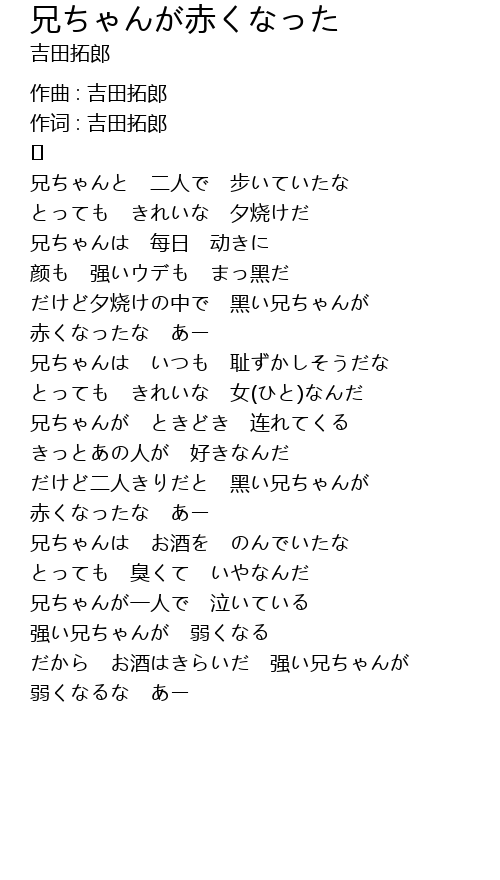 兄ちゃんが赤くなった
吉田拓郎
作曲 : 吉田拓郎
作词 : 吉田拓郎
[]
兄ちゃんと　二人で　歩いていたな
とっても　きれいな　夕烧けだ
兄ちゃんは　每日　动きに
颜も　强いウデも　まっ黑だ
だけど夕烧けの中で　黑い兄ちゃんが
赤くなったな　あー
兄ちゃんは　いつも　耻ずかしそうだな
とっても　きれいな　女(ひと)なんだ
兄ちゃんが　ときどき　连れてくる
きっとあの人が　好きなんだ
だけど二人きりだと　黑い兄ちゃんが
赤くなったな　あー
兄ちゃんは　お酒を　のんでいたな
とっても　臭くて　いやなんだ
兄ちゃんが一人で　泣いている
强い兄ちゃんが　弱くなる
だから　お酒はきらいだ　强い兄ちゃんが
弱くなるな　あー